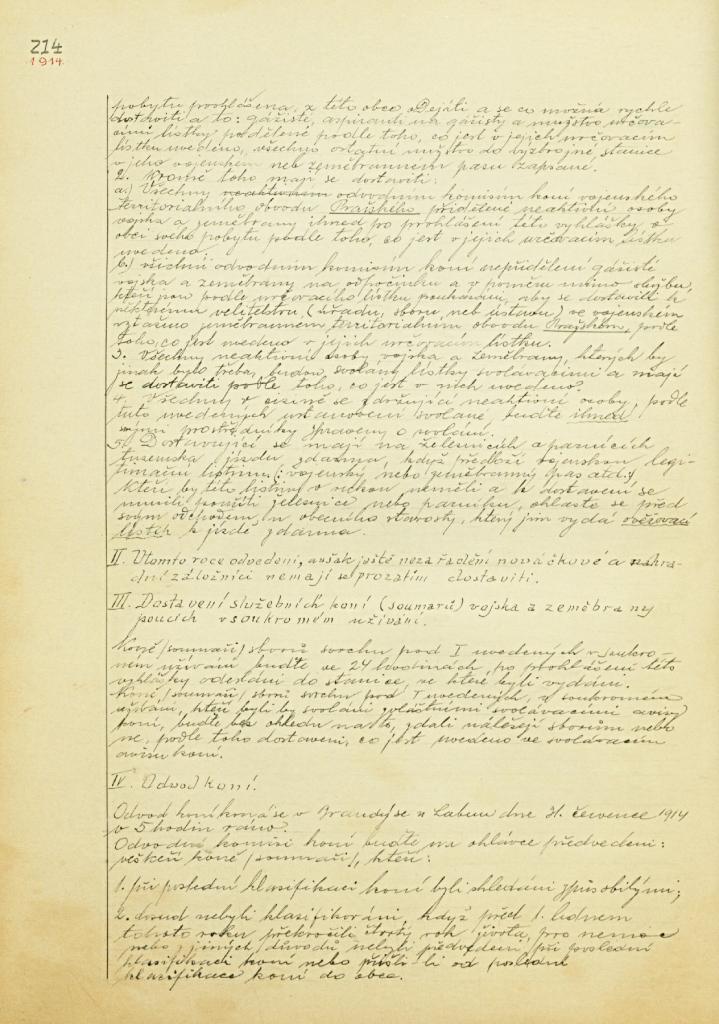 214
1914.
pobytu prohlášena, z této obce odejíti a se co možná rychle
dostaviti a to: gážisté, aspiranti na gážisty a mužstvo určova-
cími lístky podělené podle toho, co jest v jejich určovacím
lístku uvedeno, všechno ostatní mužstvo do výzbrojné stanice
v jeho vojenském neb zeměbranném pasu zapsané.
2. Kromě toho mají se dostaviti:
a.) Všechny neaktivním odvodním komisím koní vojenského
territoriálního obvodu Pražského přidělené neaktivní osoby
vojska a zeměbrany ihned po prohlášení této vyhlášky v
obci svého pobytu podle toho, co jest v jejich určovacím lístku
uvedeno.
b.) všichni odvodním komisím koní nepřidělení gážisté
vojska a zeměbrany na odpočinku a v poměru mimo službu,
kteří jsou podle určovacího lístku poukázáni, aby se dostavili k
některému velitelstvu (úřadu, sboru, neb ústavu) ve vojenském
vztažmo zeměbranném territoriálním obvodu Pražském, podle
toho, co jest uvedeno v jejich určovacím lístku.
3. Všechny neaktivní osoby vojska a zeměbrany, kterých by
jinak bylo třeba, budou svolány lístky svolávacími a mají
se dostaviti podle toho, co jest v nich uvedeno.
4. Všechny v cizině se zdržující neaktivní osoby, podle
tuto uvedených ustanovení svolané, buďte ihned
prostředníky zpraveny o svolání.
5. Dostavující se mají na železnicích a parnících
tuzemska jízdu zdarma, když předloží vojenskou legi-
timační listinu (: vojenský nebo zeměbranný pas atd.:)
Kteří by této listiny v rukou neměli a k dostavení se
musili použíti železnice nebo parníku, ohlaste se před
svým odchodem u obecního starosty, který jim vydá ověřovací
lístek k jízdě zdarma.
II. V tomto roce odvedení, avšak ještě nezařadění nováčkové a náhra-
dní záložníci nemají se prozatím dostaviti.
III. Dostavení služebních koní (soumarů) vojska a zeměbrany
jsoucích v soukromém užívání.
Koně /soumaři/ sborů svrchu pod I uvedených v soukro-
mém užívání buďte ve 24 hodinách, po prohlášení této
vyhlášky odevzdáni do stanice, ve které byli vydáni.
Koni /soumaři/ sborů svrchu pod I uvedených, v soukromém
užívání, kteří byli by svoláni zvláštními svolávacími avisy
koní, buďte bez ohledu na to, zdali náležejí sborům nebo
ne, podle toho dostaveni, co jest uvedeno ve svolávacím
avisu koní.
IV. Odvod koní.
Odvod koní koná se v Brandýse n Labem dne 31. července 1914
v 5 hodin ráno.
Odvodní komisi koní buďte na ohlávce předvedeni:
veškeří koně /soumaři/, kteří:
1. při poslední klasifikaci koní byli shledáni způsobilými;
2. dosud nebyli klasifikováni, když před 1. lednem
tohoto roku překročili čtvrtý rok života, pro nemoc
nebo z jiných důvodů nebyli předvedeni při poslední
klasifikaci koní nebo přišli-li od poslední
klasifikace koní do obce.